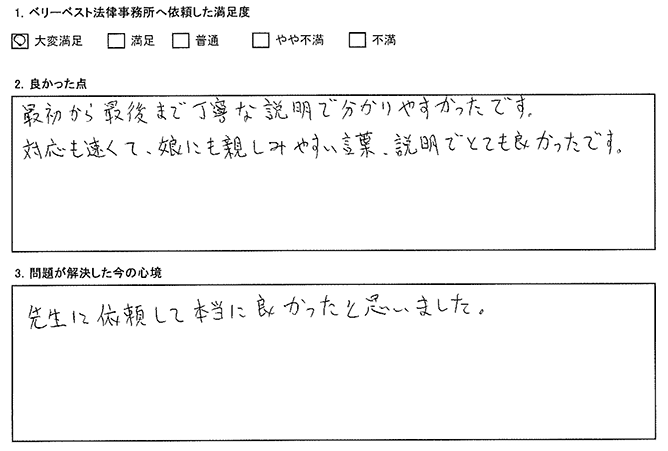 1. ベリーベスト法律事務所へ依頼した満足度
大変満足 満足 普通 やや不満 不満
2. 良かった点
最初から最後まで丁寧な説明で分かりやすかったです。
対応も速くて、娘にも親しみやすい言葉、説明でとても良かったです。
3. 問題が解決した今の心境
先生に依頼して本当に良かったと思いました。